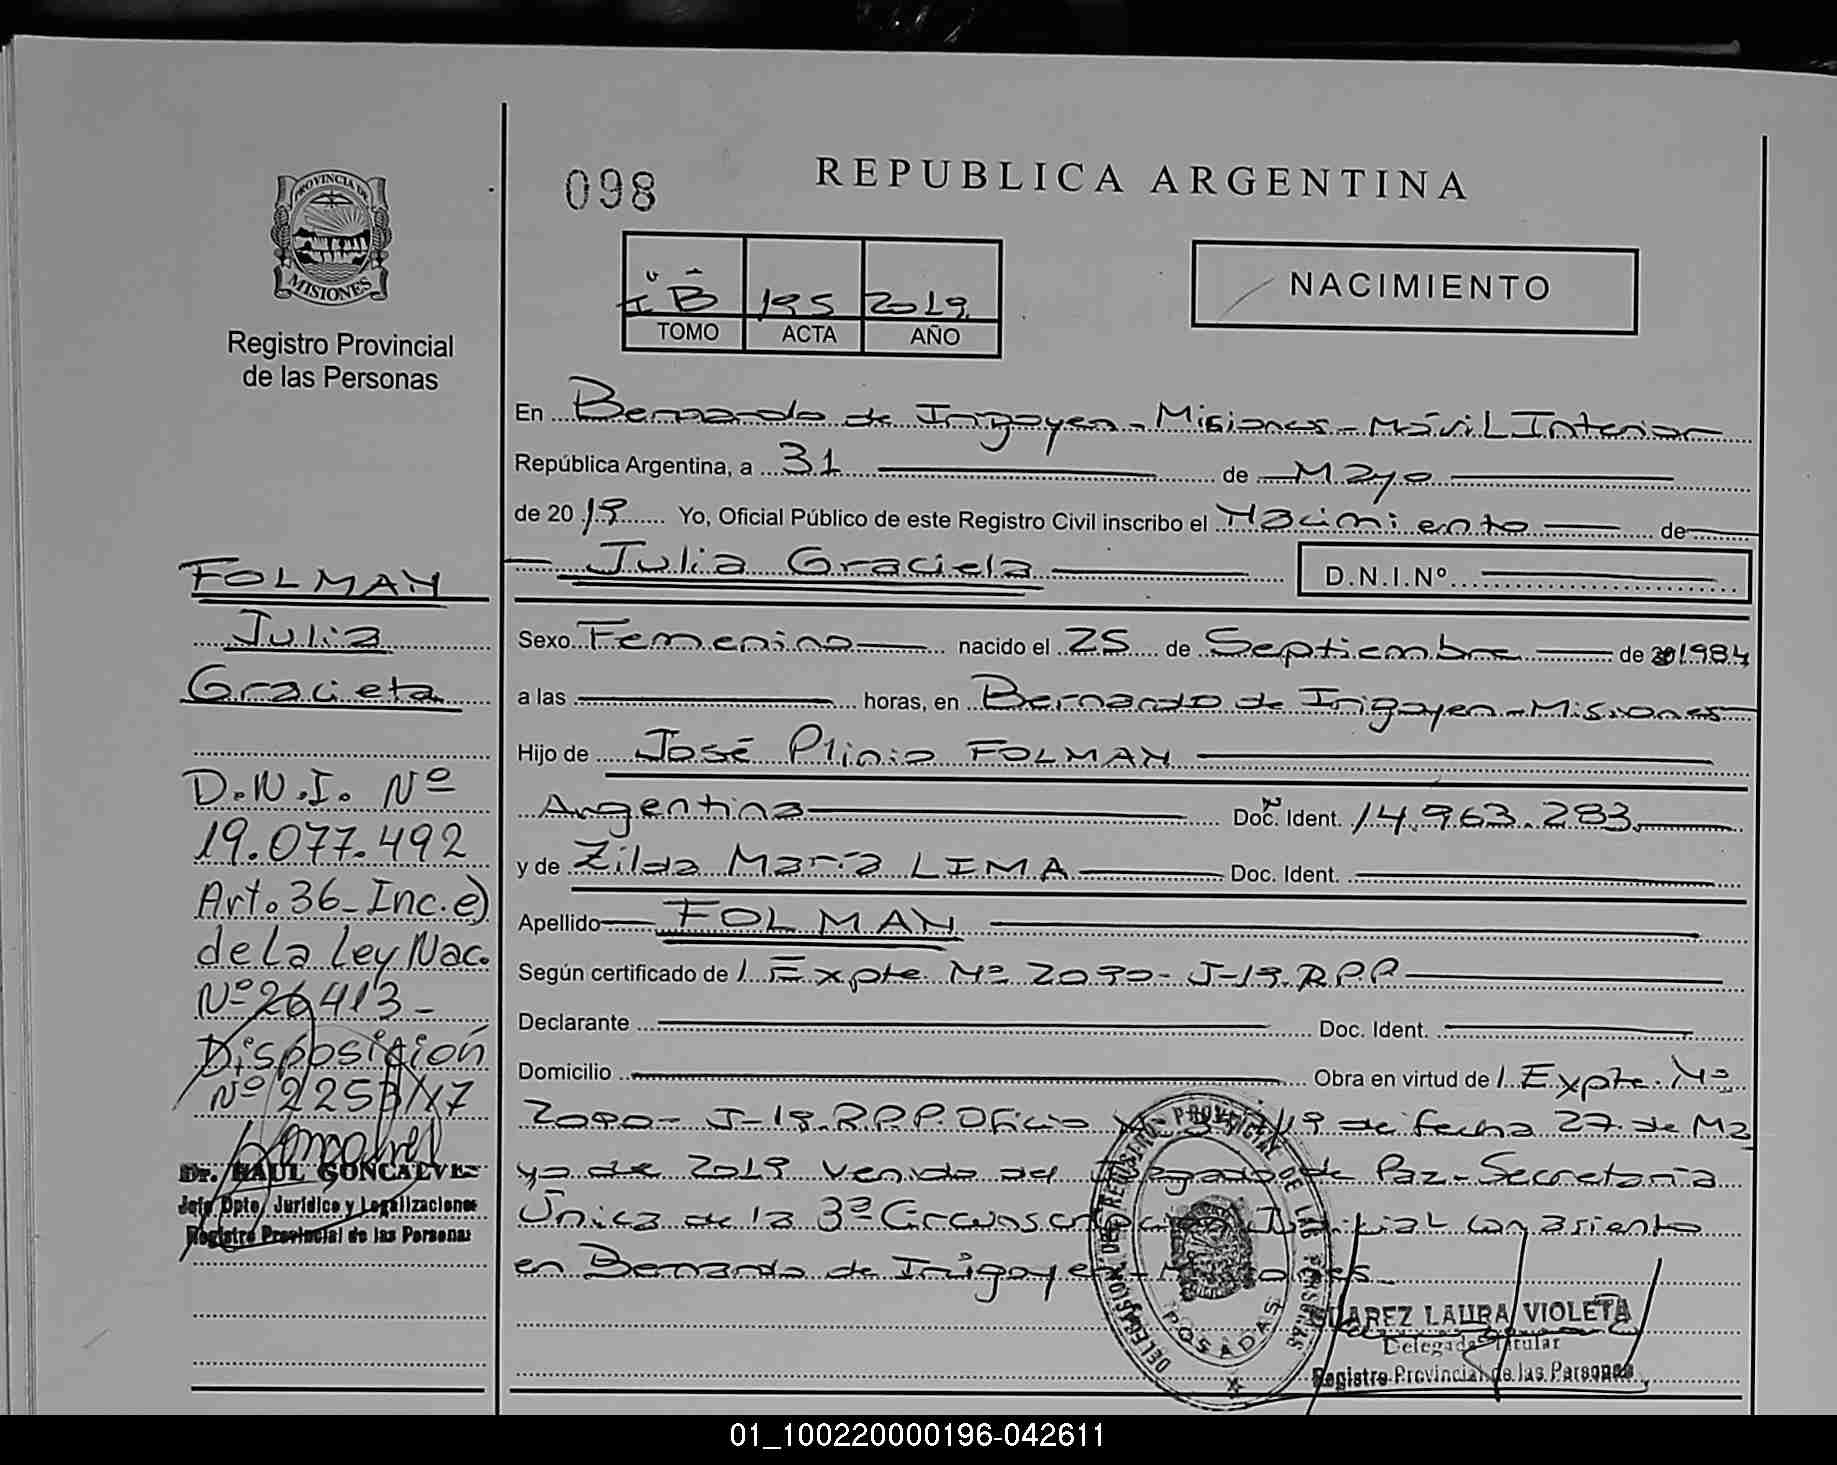 098
REPUBLICA ARGENTINA
PROVINCIA DE
MISIONES
Registro Provincial
de las Personas
B 195 2019
TOMO ACTA AÑO
NACIMIENTO
En Bernardo de Irigoyen - Misiones - Móvil Interior
República Argentina, a 31 de Mayo
de 2019 Yo, Oficial Público de este Registro Civil inscribo el Nacimiento de
Julia Graciela D.N.I.Nº
Sexo Femenino nacido el 25 de Septiembre de 1984
a las horas, en Bernardo de Irigoyen - Misiones
Hijo de José Plinio FOLMAN
Argentina Doc. Ident. 14.963.283
y de Zilda María LIMA Doc. Ident.
Apellido FOLMAN
Según certificado de Expte Nº 2090 - J-19. R.P.P
Declarante Doc. Ident.
Domicilio Obra en virtud de Expte. Nº
2090 - J-19. R.P.P. Oficio /19 de fecha 27 de Ma
yo de 2019 venido del de Paz - Secretaría
Única de la 3ª con asiento
en Bernardo de Irigoyen -
FOLMAN
Julia
Graciela
D.N.I. Nº
19.077.492
Art. 36 - Inc. e)
de la Ley Nac.
Nº 26413 -
Disposición
Nº 2253/17
Dr. RAUL GONCALVES
Jefe Dpto. Jurídico y Legalizaciones
Registro Provincial de las Personas
DELEGACION DEL REGISTRO PROVINCIAL DE LAS PERSONAS
POSADAS
SUAREZ LAURA VIOLETA
Delegada Titular
Registro Provincial de las Personas
01_100220000196-042611